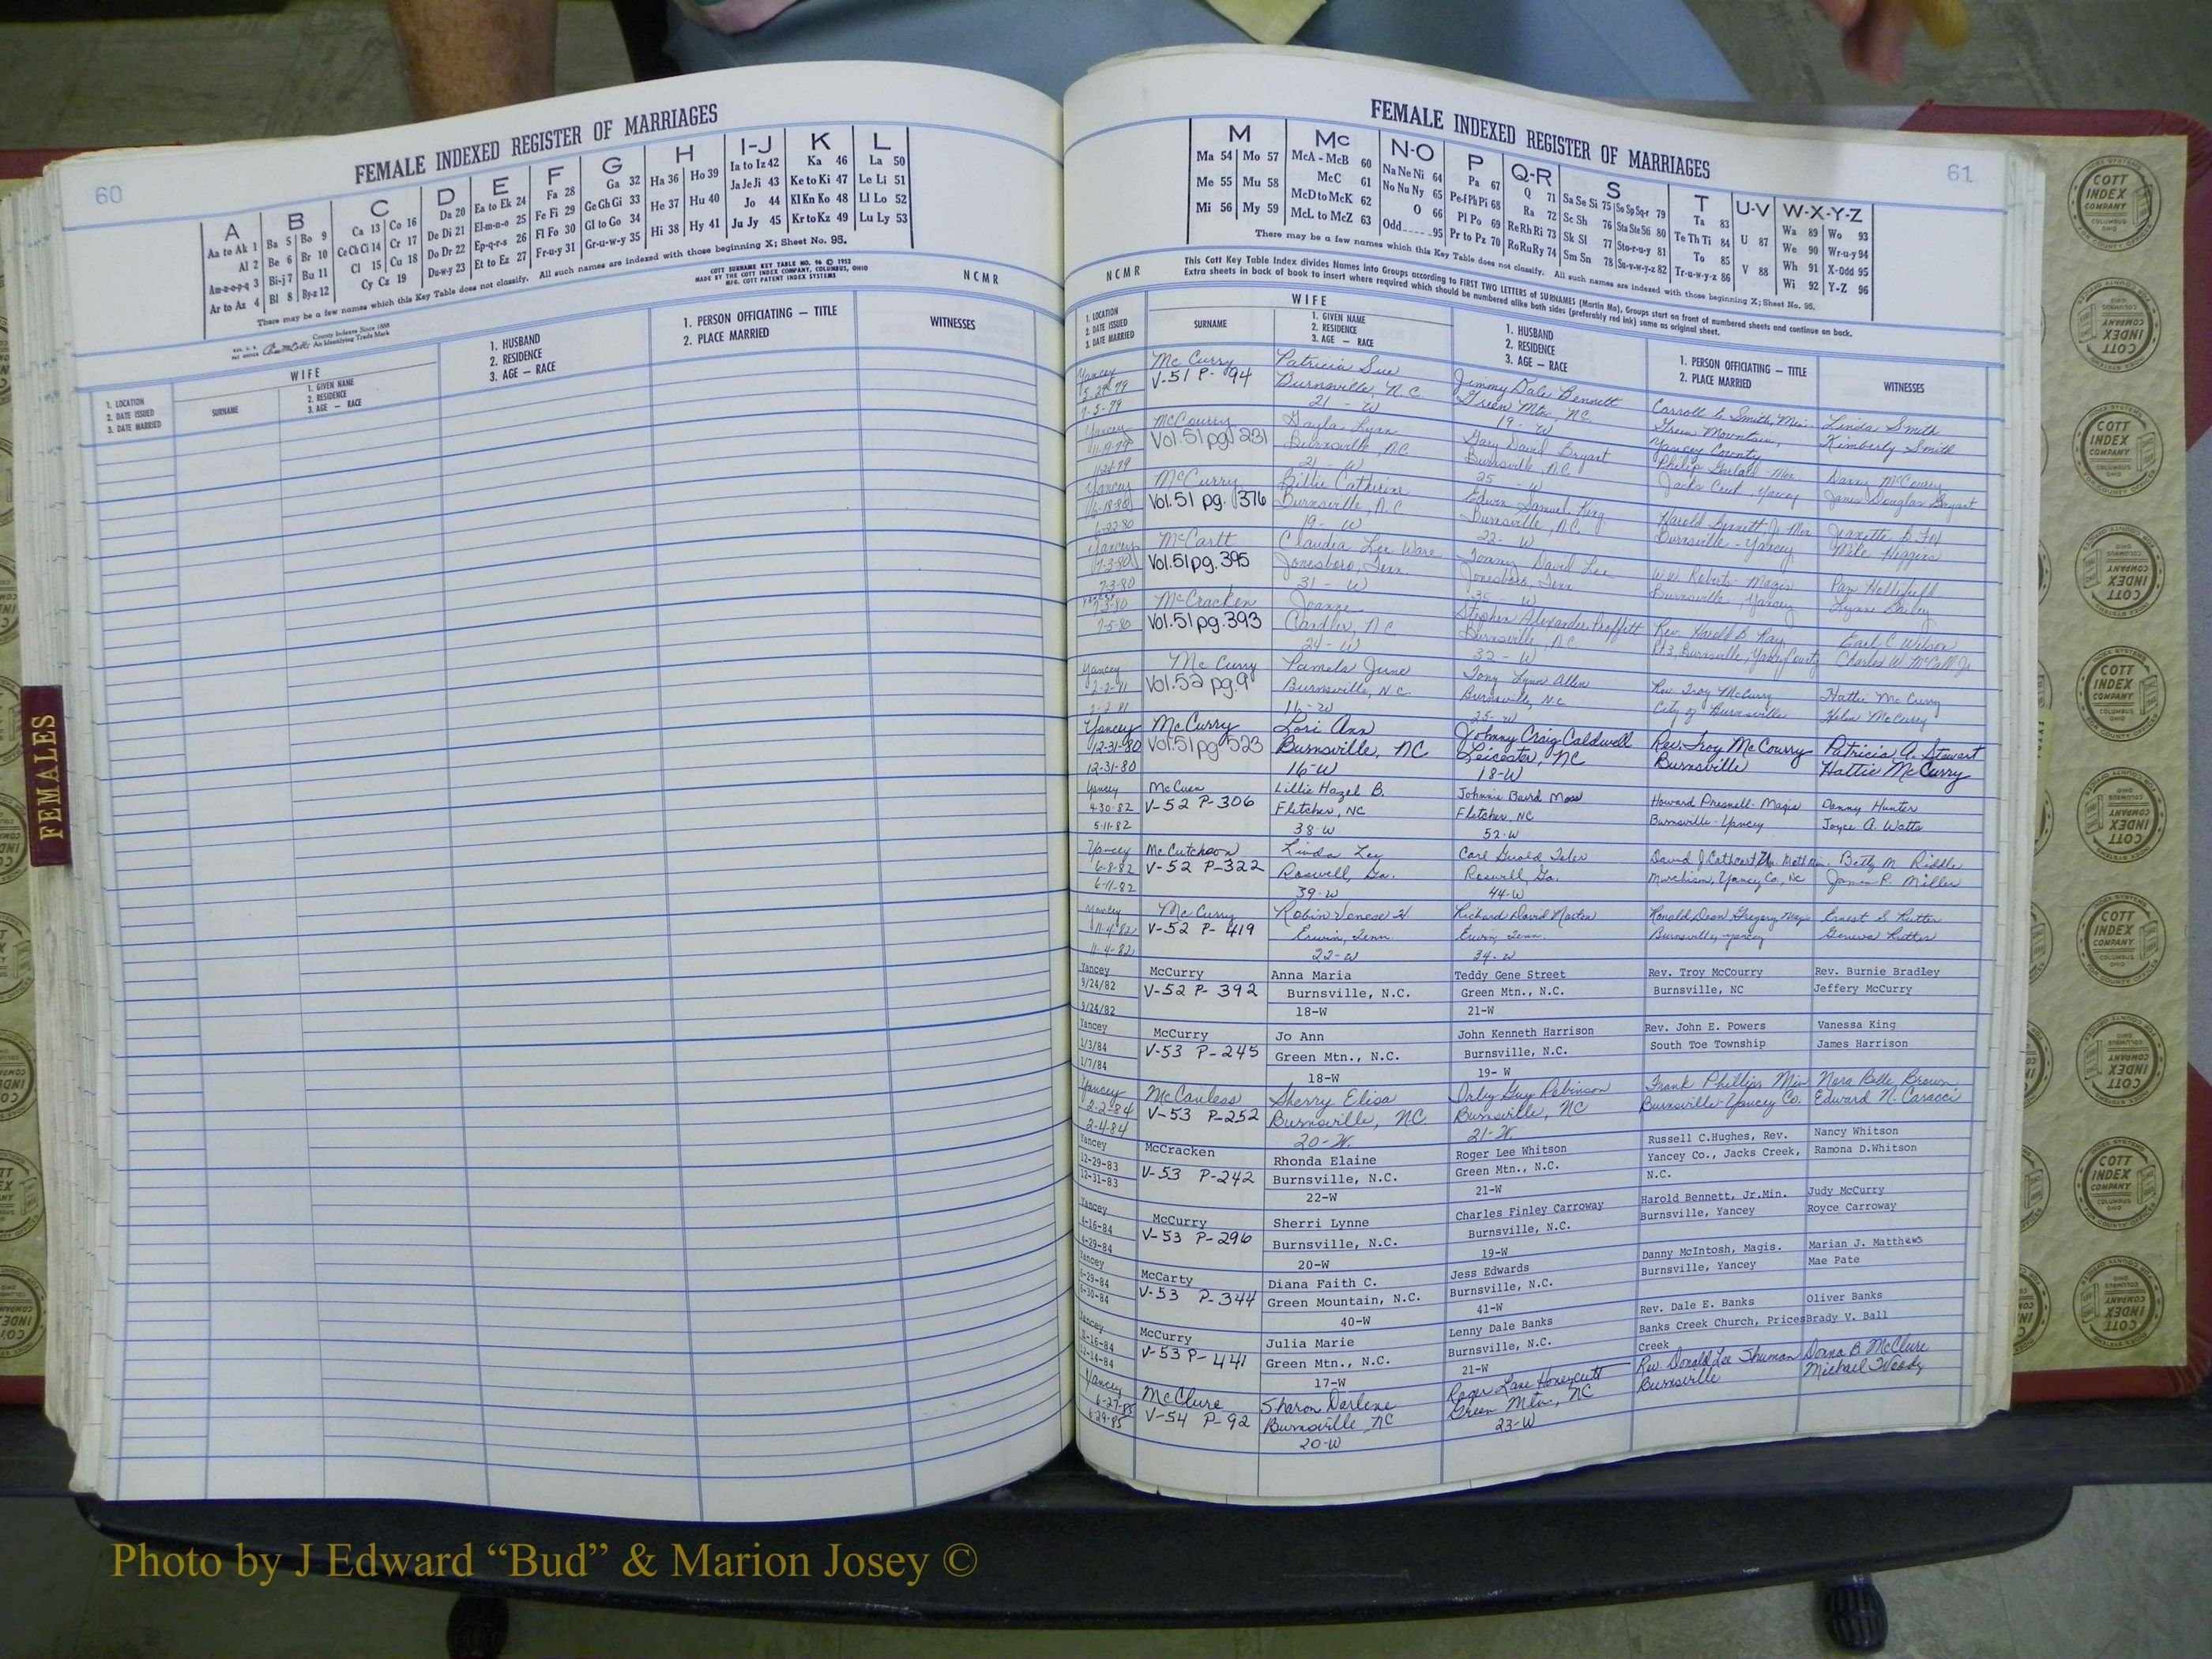 60
FEMALE INDEXED REGISTER OF MARRIAGES
A B C D E F G H I-J K L
Aa to Ak 1 Ba 5 Bo 9 Ca 13 Co 16 Da 20 Ea to Ek 24 Fa 28 Ga 32 Ha 36 Ho 39 Ia to Iz 42 Ka 46 La 50
Al 2 Be 6 Br 10 Ce Ch Ci 14 Cr 17 De Di 21 El-m-n-o 25 Fe Fi 29 Ge Gh Gi 33 He 37 Hu 40 Ja Je Ji 43 Ke to Ki 47 Le Li 51
Am-n-o-p-q 3 Bi-j 7 Bu 11 Cl 15 Cu 18 Do Dr 22 Ep-q-r-s 26 Fl Fo 30 Gl to Go 34 Hi 38 Hy 41 Jo 44 Kl Kn Ko 48 Ll Lo 52
Ar to Az 4 Bl 8 By-z 12 Cy Cz 19 Du-w-y 23 Et to Ez 27 Fr-u-y 31 Gr-u-w-y 35 Ju Jy 45 Kr to Kz 49 Lu Ly 53
There may be a few names which this Key Table does not classify. All such names are indexed with those beginning X; Sheet No. 95.
County Indexes Since 1888
An Identifying Trade Mark
COTT SURNAME KEY TABLE NO. 96 © 1952
MADE BY THE COTT INDEX COMPANY, COLUMBUS, OHIO
MFG. COTT PATENT INDEX SYSTEMS
NCMR
1. LOCATION
2. DATE ISSUED
3. DATE MARRIED
WIFE
SURNAME
1. GIVEN NAME
2. RESIDENCE
3. AGE — RACE
1. HUSBAND
2. RESIDENCE
3. AGE — RACE
1. PERSON OFFICIATING — TITLE
2. PLACE MARRIED
WITNESSES
FEMALES
61
FEMALE INDEXED REGISTER OF MARRIAGES
M Mc N-O P Q-R S T U-V W-X-Y-Z
Ma 54 Mo 57 McA - McB 60 Na Ne Ni 64 Pa 67 Q 71 Sa Se Si 75 So Sp Sq-r 79 Ta 83 U 87 Wa 89 Wo 93
Me 55 Mu 58 McC 61 No Nu Ny 65 Pe-f Ph Pi 68 Ra 72 Sc Sh 76 Sta Ste Sti 80 Te Th Ti 84 V 88 We 90 Wr-u-y 94
Mi 56 My 59 McD to McK 62 O 66 Pl Po 69 Re Rh Ri 73 Sk Sl 77 Sto-r-u-y 81 To 85 Wh 91 X-Odd 95
McL to McZ 63 Odd 95 Pr to Pz 70 Ro Ru Ry 74 Sm Sn 78 Su-v-w-y-z 82 Tr-u-w-y-z 86 Wi 92 Y-Z 96
There may be a few names which this Key Table does not classify. All such names are indexed with those beginning X; Sheet No. 95.
NCMR
This Cott Key Table Index divides Names into Groups according to FIRST TWO LETTERS of SURNAMES (Martin Ma). Groups start on front of numbered sheets and continue on back.
Extra sheets in back of book to insert where required which should be numbered alike both sides (preferably red ink) same as original sheet.
1. LOCATION
2. DATE ISSUED
3. DATE MARRIED
WIFE
SURNAME
1. GIVEN NAME
2. RESIDENCE
3. AGE — RACE
1. HUSBAND
2. RESIDENCE
3. AGE — RACE
1. PERSON OFFICIATING — TITLE
2. PLACE MARRIED
WITNESSES
Yancey McCurry Patricia Sue Jimmy Dale Bennett Carroll C. Smith, Min. Linda Smith
V-51 P-94 Burnsville, N.C. Green Mtn., NC Green Mountain, Kimberly Smith
7-5-79 21 - W 19 - W Yancey County
Yancey McCourry Gayla Lynn Gary David Bryant Danny McCourry
Vol.51 pg 231 Burnsville, NC Burnsville, N.C. Jacks Creek, Yancey James Douglas Bryant
11-21-79 21 - W 25 - W
Yancey McCurry Billie Catherine Edwin Samuel King Harold Bennett Jr. Min
6-18-80 Vol.51 pg. 376 Burnsville, N.C Burnsville, N.C. Burnsville - Yancey Mike Higgins
6-22-80 19 - W 22 - W
Yancey Claudia Lee Ware Tommy David Lee W.W. Roberts - Magis.
7-3-80 Vol.51pg.395 Jonesboro, Tenn. Jonesboro, Tenn Burnsville, Yancey
7-3-80 31 - W 35 - W
7-3-80 McCracken Joanne Stephen Alexander Proffitt Rev. Harold B. Ray Earl C. Wilson
7-5-80 Vol.51pg.393 Candler, NC Burnsville, NC Rt 3, Burnsville, Yancey County Charles W. McCall Jr
24 - W 32 - W
Yancey McCurry Pamela June Tony Lynn Allen Rev. Troy McCurry Hattie McCurry
Vol.52 pg.9 Burnsville, N.C. Burnsville, N.C. City of Burnsville Helen McCurry
16-W 25-W
Yancey McCurry Lori Ann Johnny Craig Caldwell Rev. Troy McCourry Patricia A. Stewart
12-31-80 Vol.51pg.523 Burnsville, NC Leicester, NC Burnsville Hattie McCurry
12-31-80 16-W 18-W
Yancey McCuen Lillie Hazel B. Johnnie Baird Moss Howard Presnell - Magis Danny Hunter
4-30-82 V-52 P-306 Fletcher, NC Fletcher, NC Burnsville - Yancey Joyce A. Watts
5-11-82 38-W 52-W
Yancey McCutcheon Linda Lee Betty M. Riddle
6-8-82 V-52 P-322 Roswell, Ga. Roswell, Ga. Murchison, Yancey Co., NC James R. Miller
6-11-82 39-W 44-W
Yancey McCurry Richard David Norton Ronald Dean Gregory, Magis
11-4-82 V-52 P-419 Erwin, Tenn. Erwin, Tenn. Burnsville, Yancey
11-4-82 22-W 34-W
Yancey McCurry Anna Maria Teddy Gene Street Rev. Troy McCourry Rev. Burnie Bradley
9/24/82 V-52 P-392 Burnsville, N.C. Green Mtn., N.C. Burnsville, NC Jeffery McCurry
9/24/82 18-W 21-W
Yancey McCurry Jo Ann John Kenneth Harrison Rev. John E. Powers Vanessa King
1/3/84 V-53 P-245 Green Mtn., N.C. Burnsville, N.C. South Toe Township James Harrison
1/7/84 18-W 19- W
Yancey McCanless Sherry Elisa Orley Guy Robinson Frank Phillips Min Nora Belle Brown
2-2-84 V-53 P-252 Burnsville, NC. Burnsville, NC Burnsville-Yancey Co. Edward N. Caracci
2-4-84 20-W. 21-W.
Yancey McCracken Rhonda Elaine Roger Lee Whitson Russell C.Hughes, Rev. Nancy Whitson
12-29-83 V-53 P-242 Burnsville, N.C. Green Mtn., N.C. Yancey Co., Jacks Creek, Ramona D.Whitson
12-31-83 22-W 21-W N.C.
Yancey McCurry Sherri Lynne Charles Finley Carroway Harold Bennett, Jr.Min. Judy McCurry
4-16-84 V-53 P-296 Burnsville, N.C. Burnsville, N.C. Burnsville, Yancey Royce Carroway
4-29-84 20-W 19-W
Yancey McCarty Diana Faith C. Jess Edwards Danny McIntosh, Magis. Marian J. Matthews
6-29-84 V-53 P-344 Green Mountain, N.C. Burnsville, N.C. Burnsville, Yancey Mae Pate
6-30-84 40-W 41-W
Yancey McCurry Julia Marie Lenny Dale Banks Rev. Dale E. Banks Oliver Banks
V-53 P-441 Green Mtn., N.C. Burnsville, N.C. Banks Creek Church, Prices Brady V. Ball
12-14-84 17-W 21-W Creek
Yancey McClure Sharon Darlene Roger Lane Honeycutt Rev. Donald Lee Shuman Donna B McClure
6-27-85 V-54 P-92 Burnsville, NC Green Mtn., NC Burnsville Michael Woody
6-29-85 20-W 23-W
INDEX SYSTEMS
COTT
INDEX
COMPANY
COLUMBUS
OHIO
FOR COUNTY OFFICES
Photo by J Edward “Bud” & Marion Josey ©